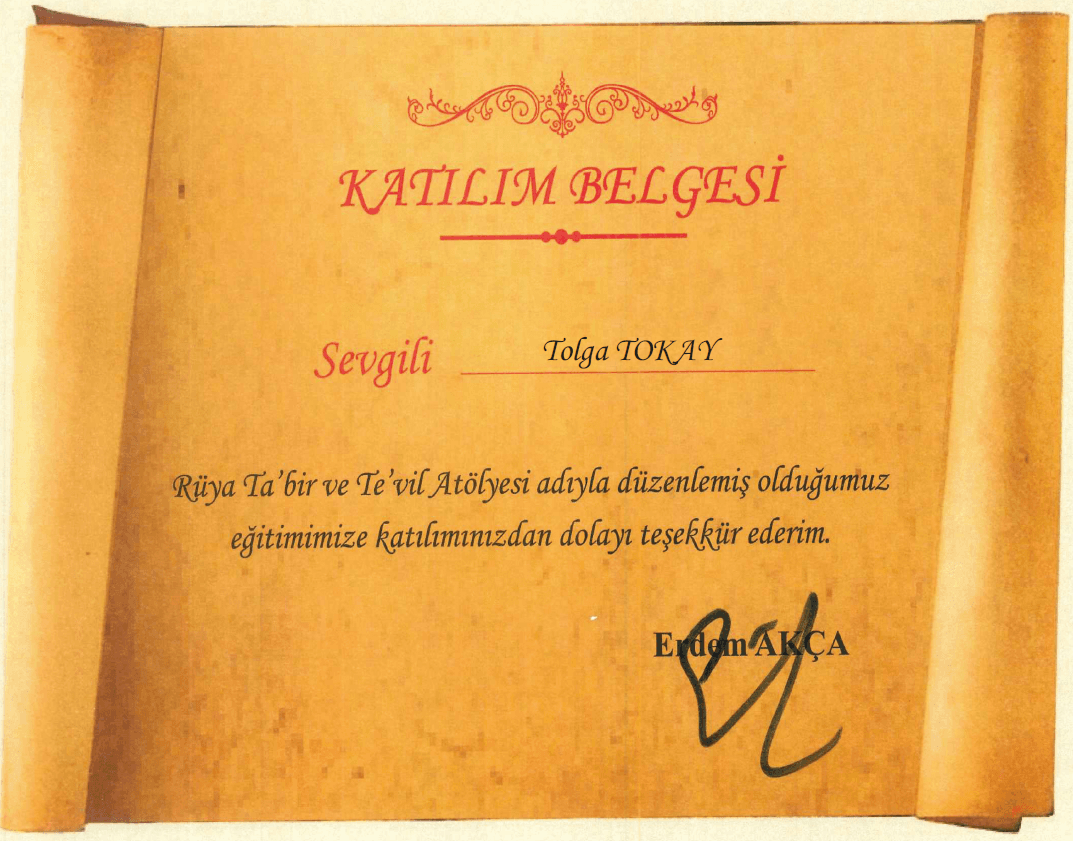 KATILIM BELGESİ
Sevgili Tolga TOKAY
Rüya Ta'bir ve Te'vil Atölyesi adıyla düzenlemiş olduğumuz
eğitimimize katılımınızdan dolayı teşekkür ederim.
Erdem AKÇA